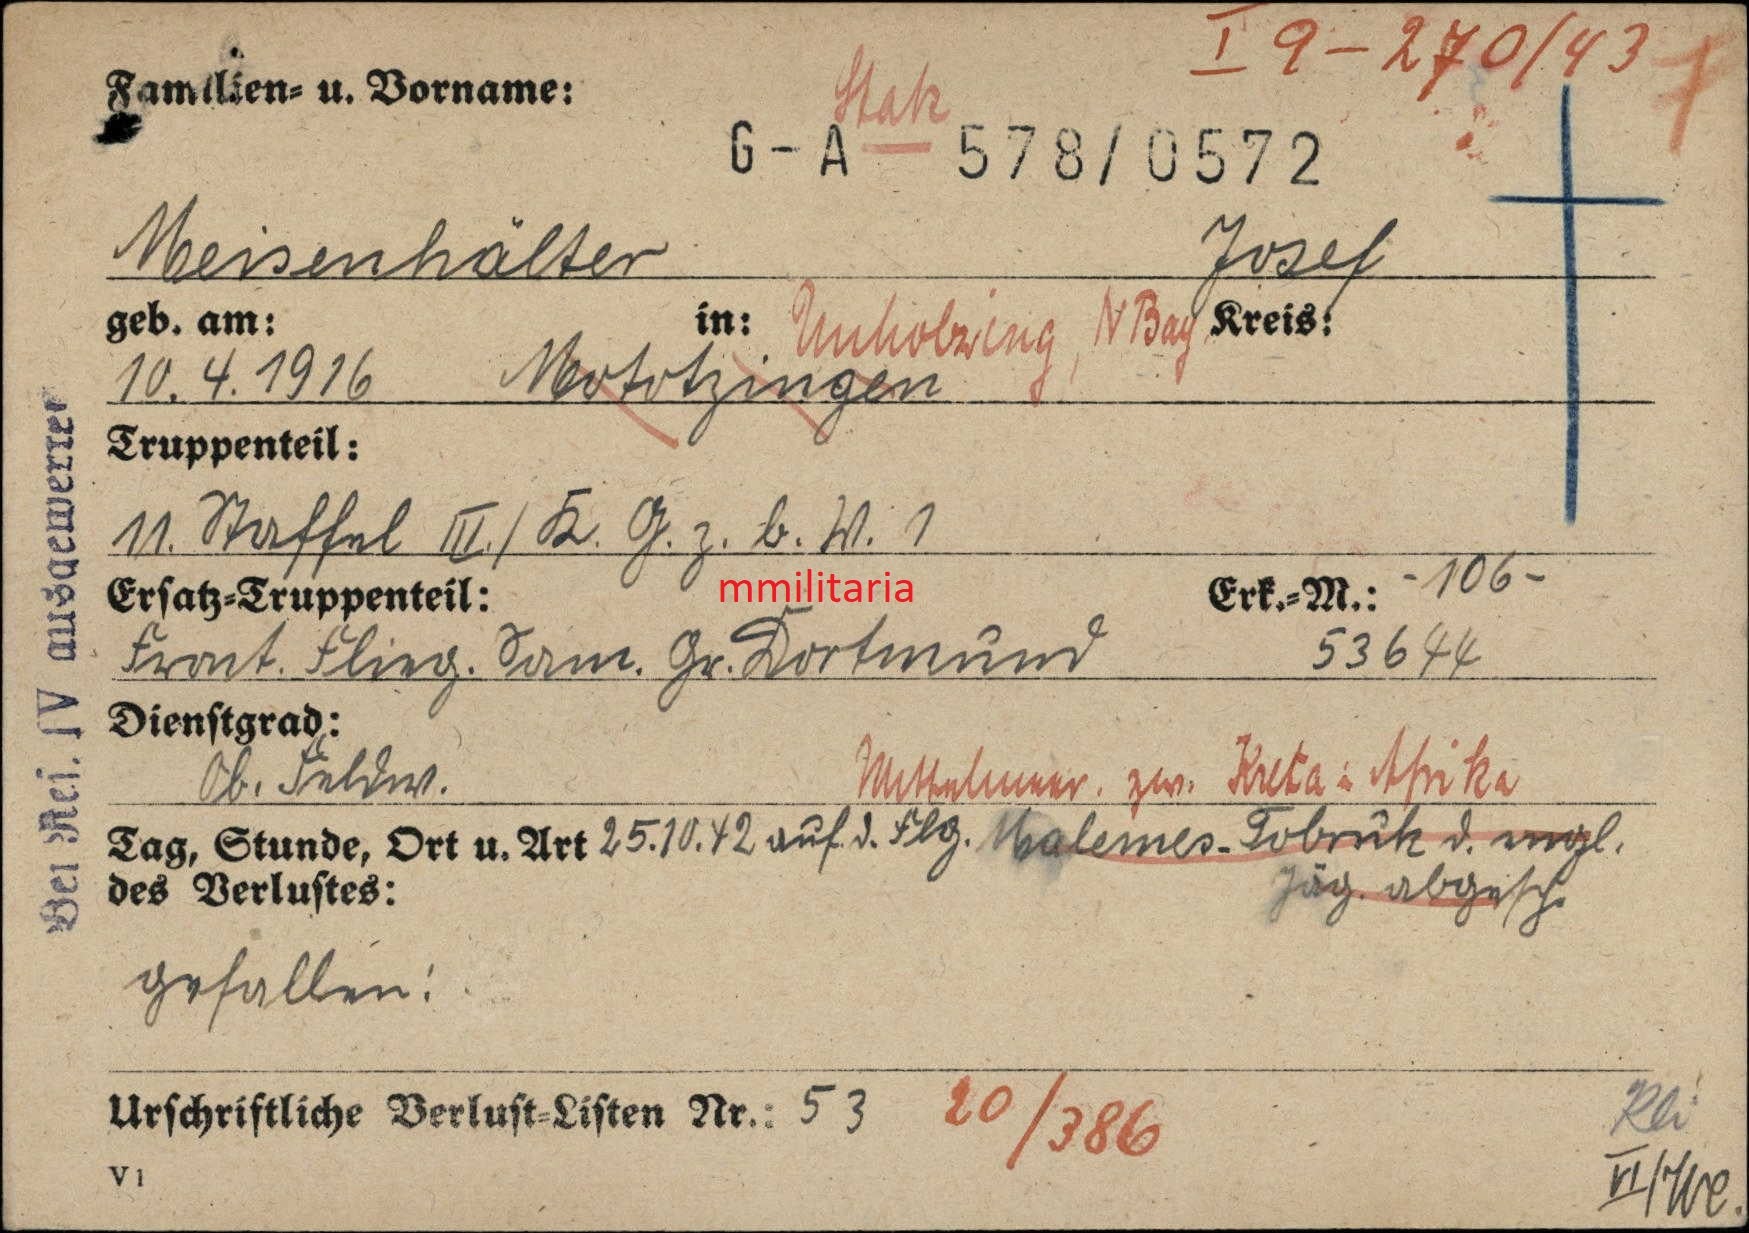 I 9 – 270/43
Familien= u. Vorname:
G - A 578/0572
Meisenhälter Josef
geb. am: in: Unholzing, N Bay Kreis:
10. 4. 1916 Mototzingen
Truppenteil:
11. Staffel III./ K. G. z. b. V. 1
Ersatz=Truppenteil: mmilitaria Erk.=M.: -106-
Front. Flieg. Sam. Gr. Dortmund 53644
Dienstgrad:
Ob. Feldw. Mittelmeer. zw. Kreta u Afrika
Tag, Stunde, Ort u. Art 25.10.42 auf d. Flg. Malemes-Tobruk d. engl.
des Verlustes: Jäg. abgesch.
gefallen!
Urschriftliche Verlust=Listen Nr.: 53 20/386
V 1
VI/We.
Bei Ref. IV ausgewertet